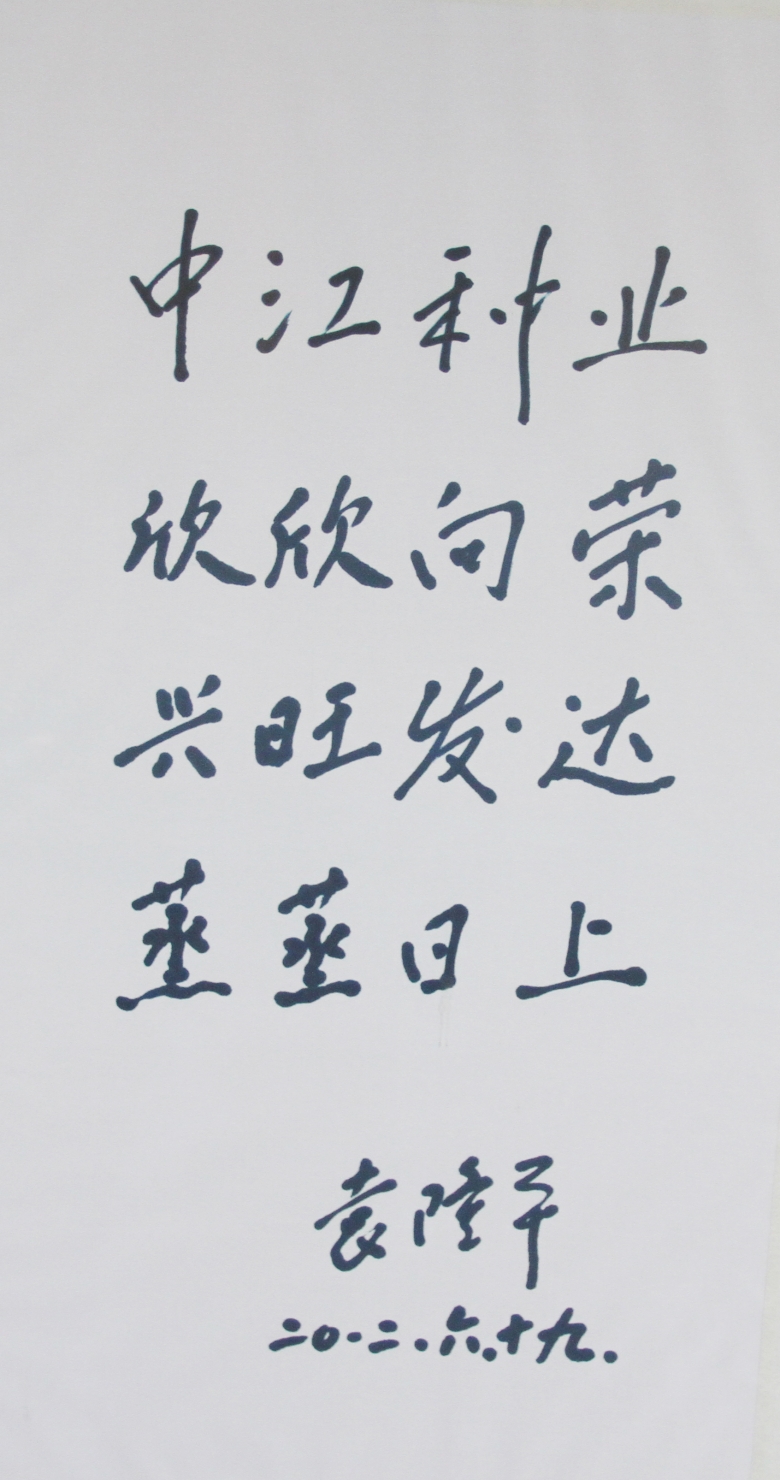 中江种业
欣欣向荣
兴旺发达
蒸蒸日上
袁隆平
二〇一二.六.十九.